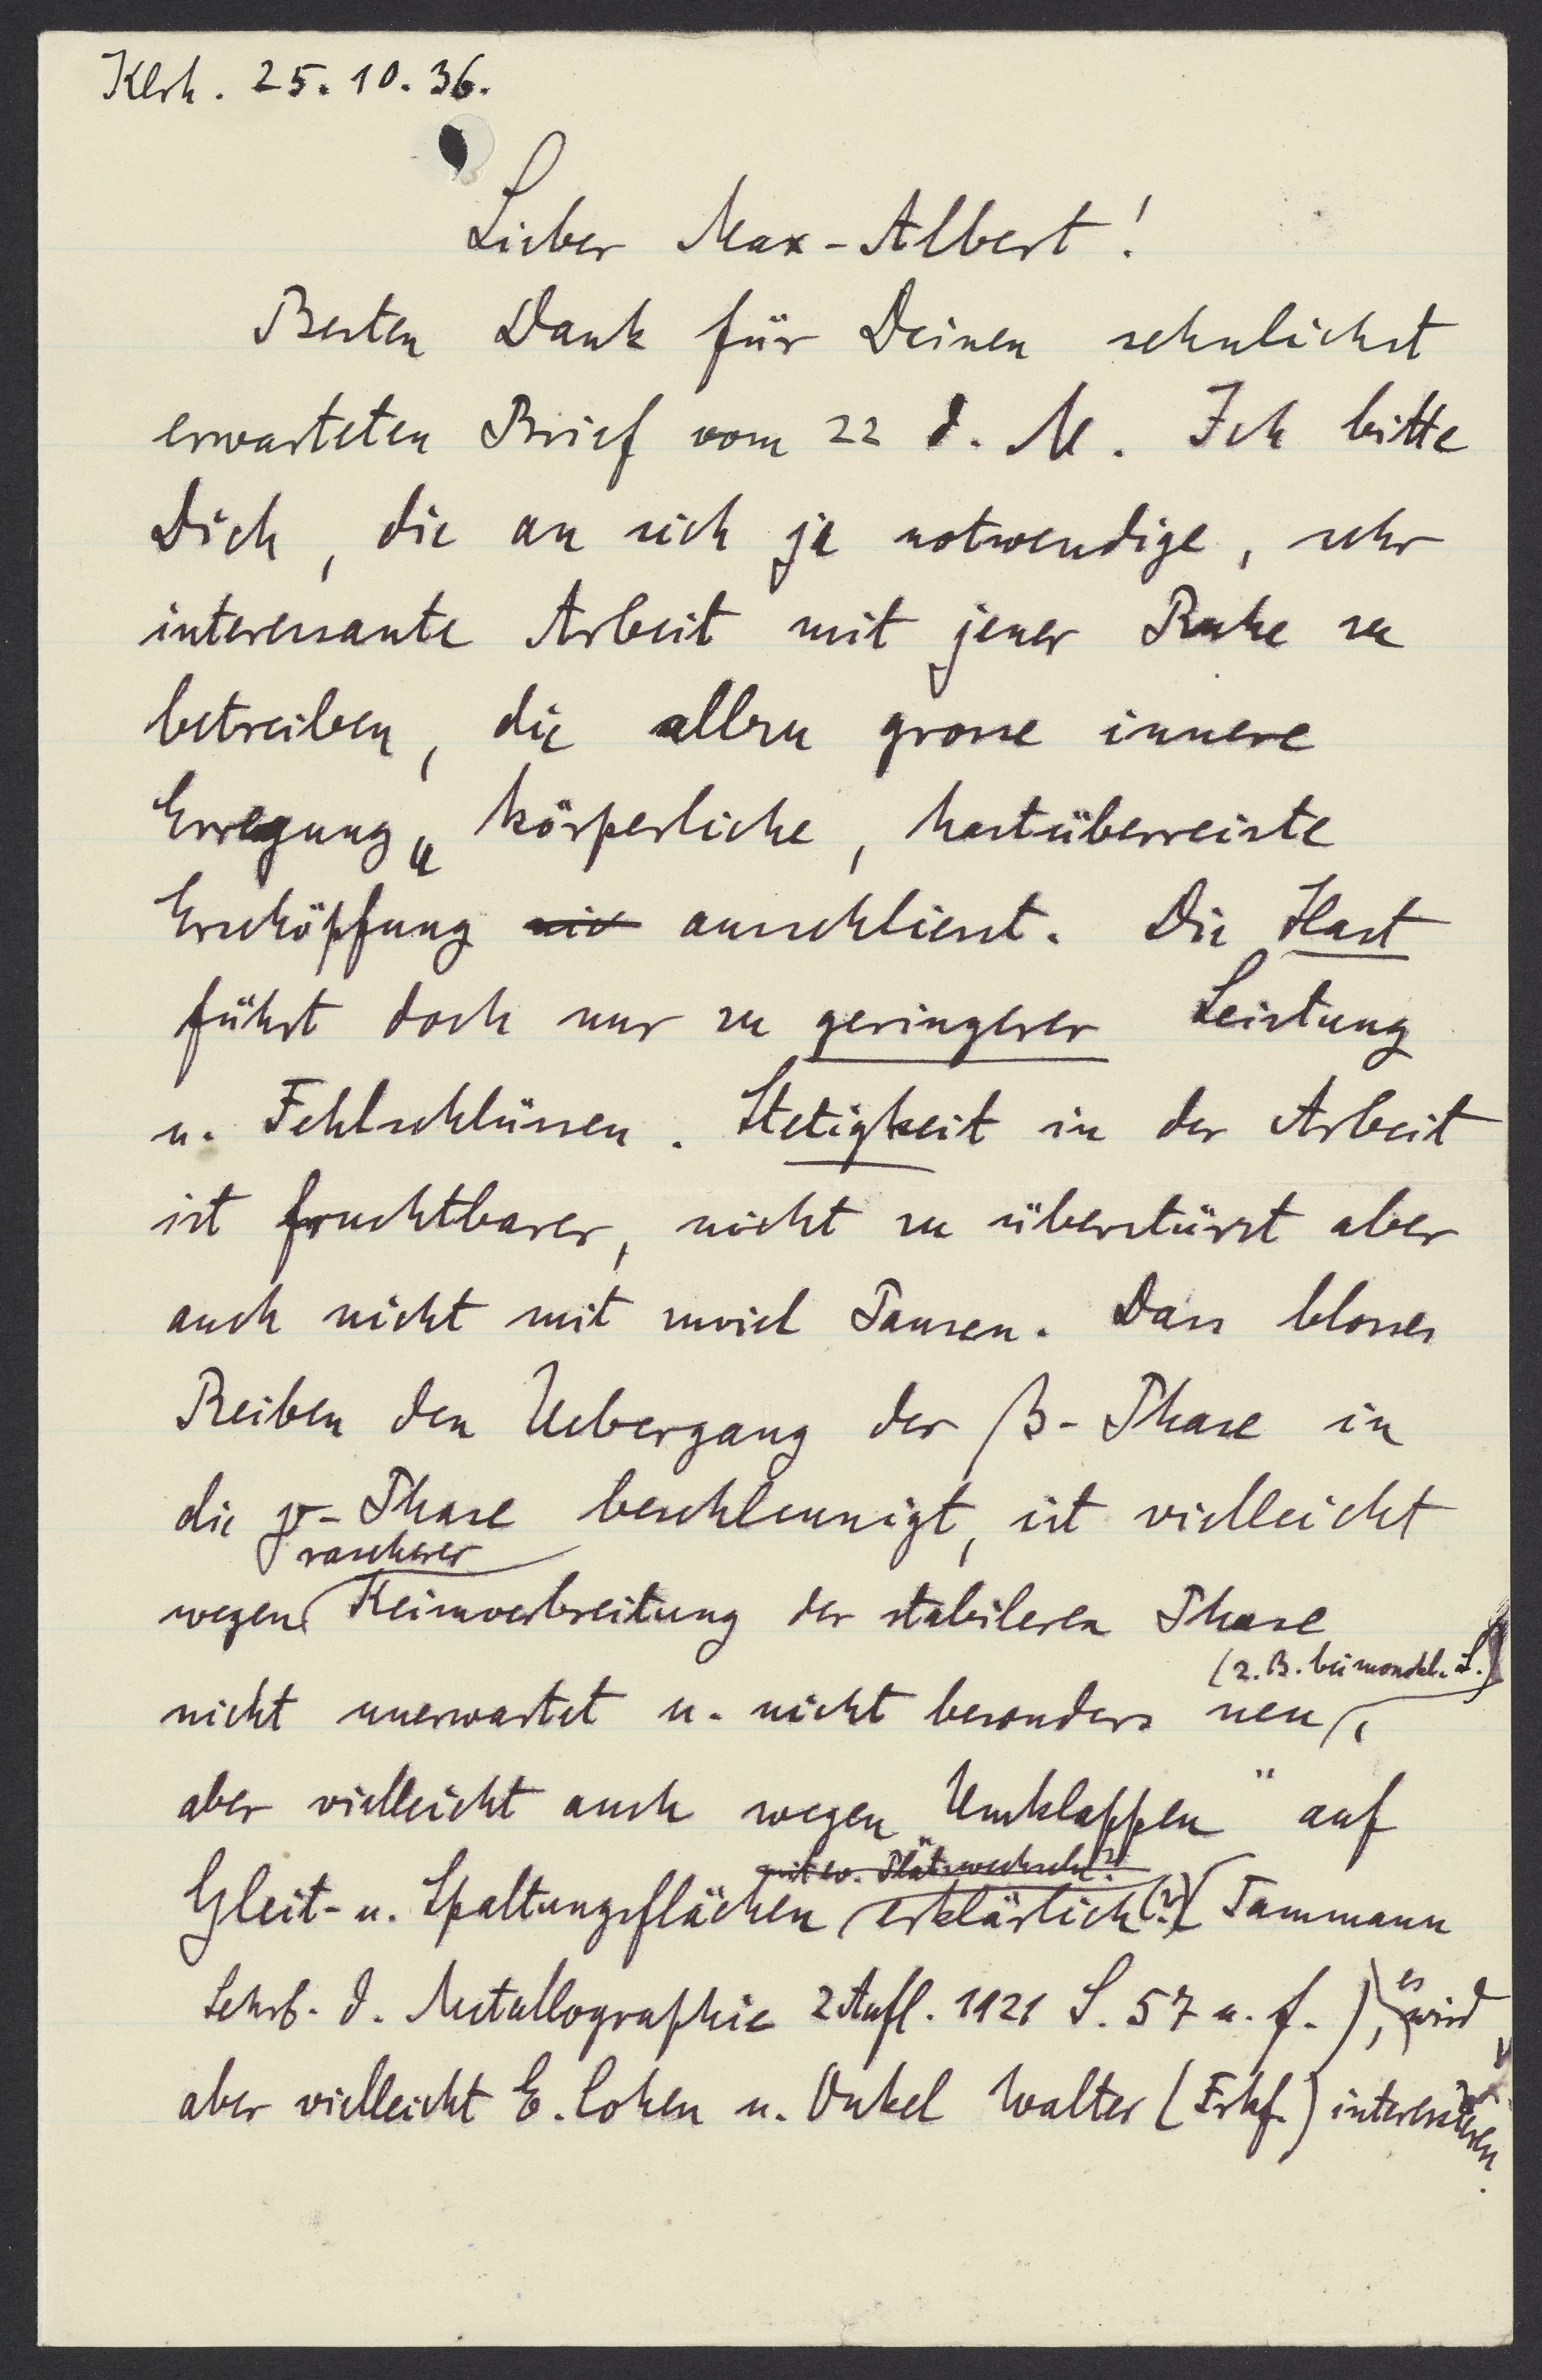 Klrh. 25.10.36.
Lieber Max-Albert!
Besten Dank für Deinen sehnlichst
erwarteten Brief vom 22 d. M. Ich bitte
Dich, die an sich ja notwendige, sehr
interessante Arbeit mit jener Ruhe zu
betreiben, die allzu grosse innere
Erregung u körperliche, hastüberreizte
Erschöpfung ausschliesst. Die Hast
führt doch nur zu geringerer Leistung
u. Fehlschlüssen. Stetigkeit in der Arbeit
ist fruchtbarer, nicht zu überstürzt aber
auch nicht mit zuviel Pausen. Dass blosses
Reiben den Uebergang der β-Phase in
die γ-Phase beschleunigt, ist vielleicht
wegen rascherer Keimverbreitung der stabileren Phase
nicht unerwartet u. nicht besonders neu (z.B. bei monokl. S.),
aber vielleicht auch wegen „Umklappen" auf
mit ev. Platzwechseln?
Gleit- u. Spaltungsflächen erklärlich(?) (Tammann
Lehrb. d. Metallographie 2 Aufl. 1921 S. 57 u. f.), es wird
aber vielleicht E. Cohen u. Onkel Walter (Frkf.) interessieren.